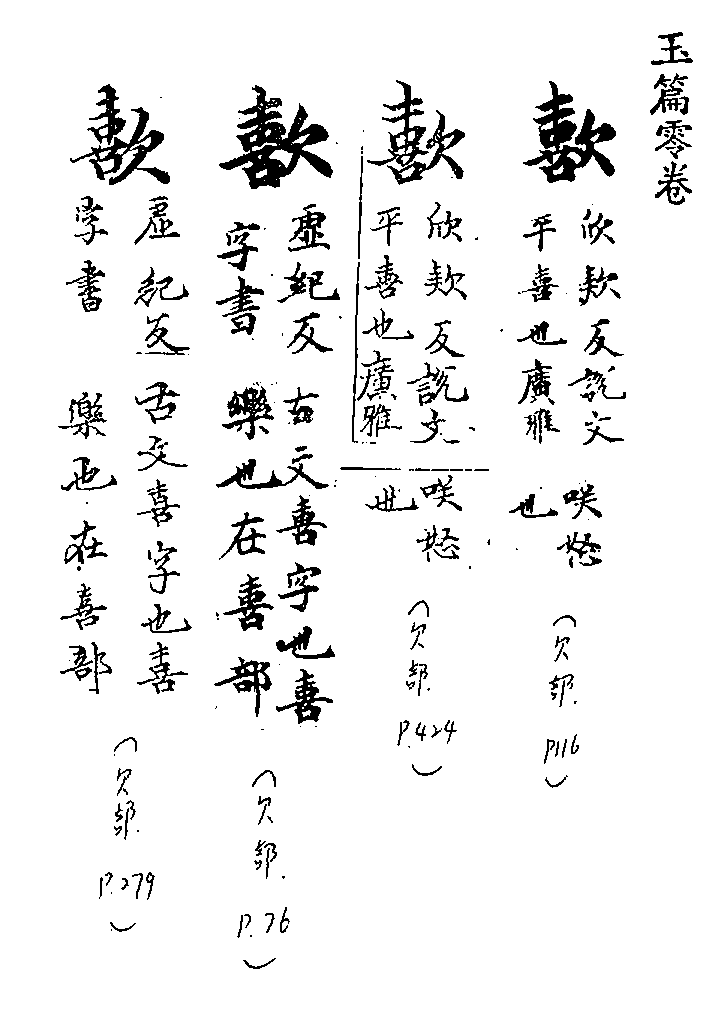 玉篇零卷
歖
欣欵反說文
平喜也廣雅
咲
也
（欠部. P116）
歖
欣欵反說文
平喜也廣雅
咲
也
（欠部. P.424）
歖
虛紀反古文喜字也喜
字書樂也在喜部
（欠部. P.76）
歖
虛紀反古文喜字也喜
字書樂也在喜部
（欠部. P.279）